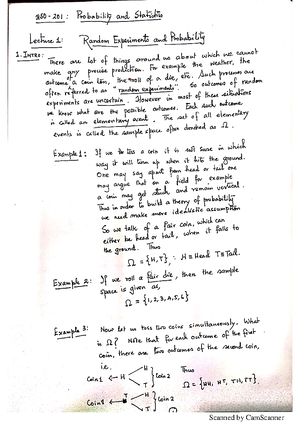 MSO-201: Probability and Statistics
Lecture 1: Random Experiments and Probability
1. Intro:
There are lot of things around us about which we cannot
make any precise prediction. For example the weather, the
outcome a coin toss, the roll of a die, etc. Such processes are
often referred to as "random experiments". So outcomes of random
experiments are uncertain. However in most of these situations
we know what are the possible outcomes. Each such outcome
is called an elementary event. The set of all elementary
events is called the sample space often denoted as Ω.
Example 1: If we toss a coin it is not sure in which
way it will turn up when it hits the ground.
One may say apart from head or tail one
may argue that on a field for example
a coin may get stuck and remain vertical.
Thus in order to build a theory of probability
we need make more idealistic assumption
So we talk of a fair coin, which can
either be head or tail, when it falls to
the ground. Thus
Ω = {H, T}, H ≡ Head T ≡ Tail.
Example 2: If we roll a fair die, then the sample
space is given as,
Ω = {1, 2, 3, 4, 5, 6}
Example 3: Now let us toss two coins simultaneously. What
is Ω? Note that for each outcome of the first
coin, there are two outcomes of the second coin,
i.e.
Coin 1 H H Coin 2 Thus
T
Ω = {HH, HT, TH, TT}.
Coin 1 T H Coin 2
T
Scanned by CamScanner